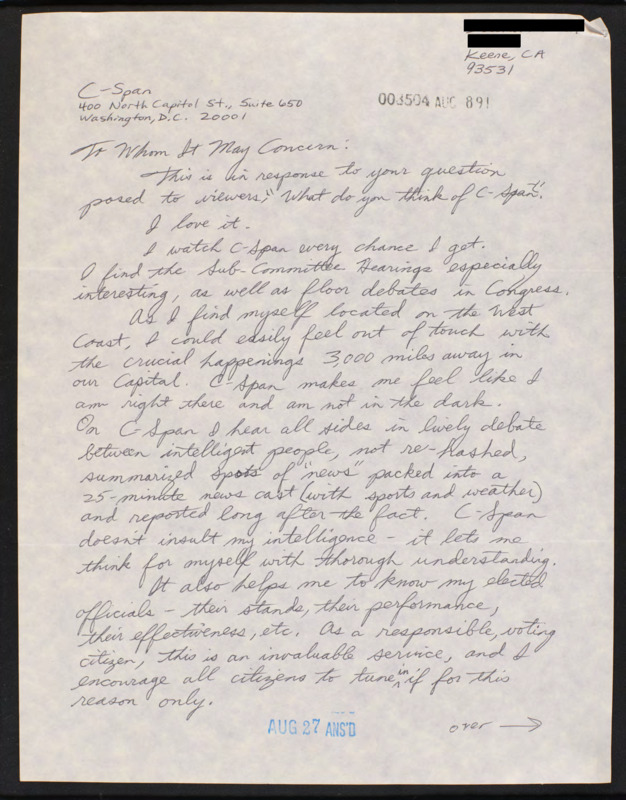 Keene, CA
93531
C-Span
400 North Capitol St., Suite 650
Washington, D.C. 20001
003504 AUG 891
To Whom It May Concern:
This is in response to your question
posed to viewers, "What do you think of C-Span".
I love it.
I watch C-Span every chance I get.
I find the Sub-Committee Hearings especially
interesting, as well as floor debates in Congress.
As I find myself located on the West
Coast, I could easily feel out of touch with
the crucial happenings 3,000 miles away in
our Capital. C-Span makes me feel like I
am right there and am not in the dark.
On C-Span I hear all sides in lively debate
between intelligent people, not re-hashed,
summarized spots of "news" packed into a
25-minute news cast (with sports and weather)
and reported long after the fact. C-Span
doesn't insult my intelligence - it lets me
think for myself with thorough understanding.
It also helps me to know my elected
officials - their stands, their performance,
their effectiveness, etc. As a responsible, voting
citizen, this is an invaluable service, and I
encourage all citizens to tune in if for this
reason only.
AUG 27 ANS'D
over →